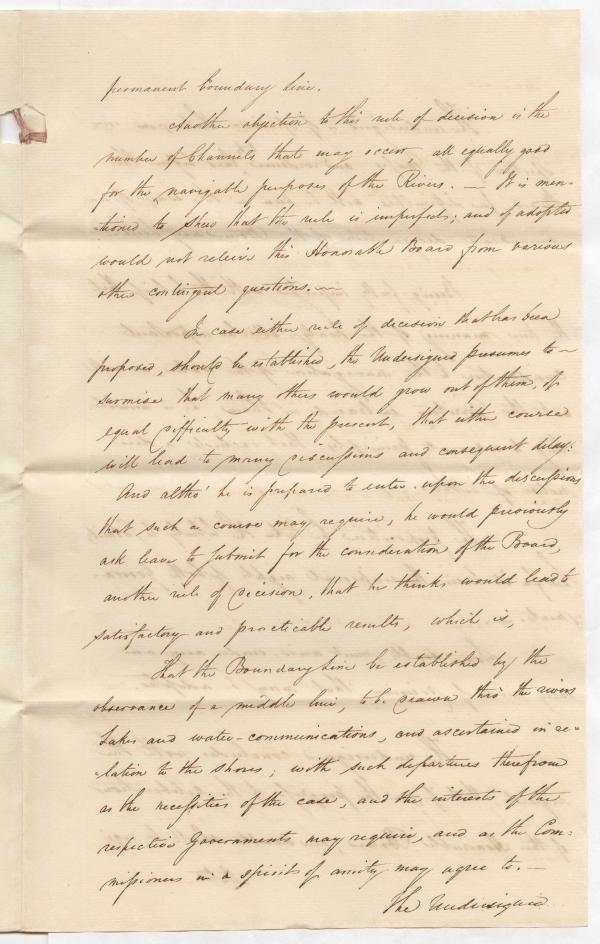 permanent boundary line.
Another objection to this rule of decision is the
number of Channels that may occur, all equally good
for the navigable purposes of the Rivers. — It is men-
-tioned to shew that the rule is imperfect; and if adopted
would not releive this Honorable Board from various
other contingent questions. —
In case either rule of decision that has been
proposed, should be established, the Undersigned presumes to —
surmise that many others would grow out of them, of
equal difficulty with the present, that either course
will lead to many discussions and consequent delay:
And altho' he is prepared to enter upon the discussions
that such a course may require, he would previously
ask leave to submit for the consideration of the Board,
another rule of decision, that he thinks would lead to
satisfactory and practicable results, which is,
That the Boundary Line be established by the
observance of a middle line, to be drawn thro' the rivers
Lakes and water-communications, and ascertained in re-
-lation to the shores; with such departures therefrom
as the necessities of the case, and the interests of the
respective Governments may require, and as the Com-
missioners in a spirit of amity may agree to. —
The Undersigned